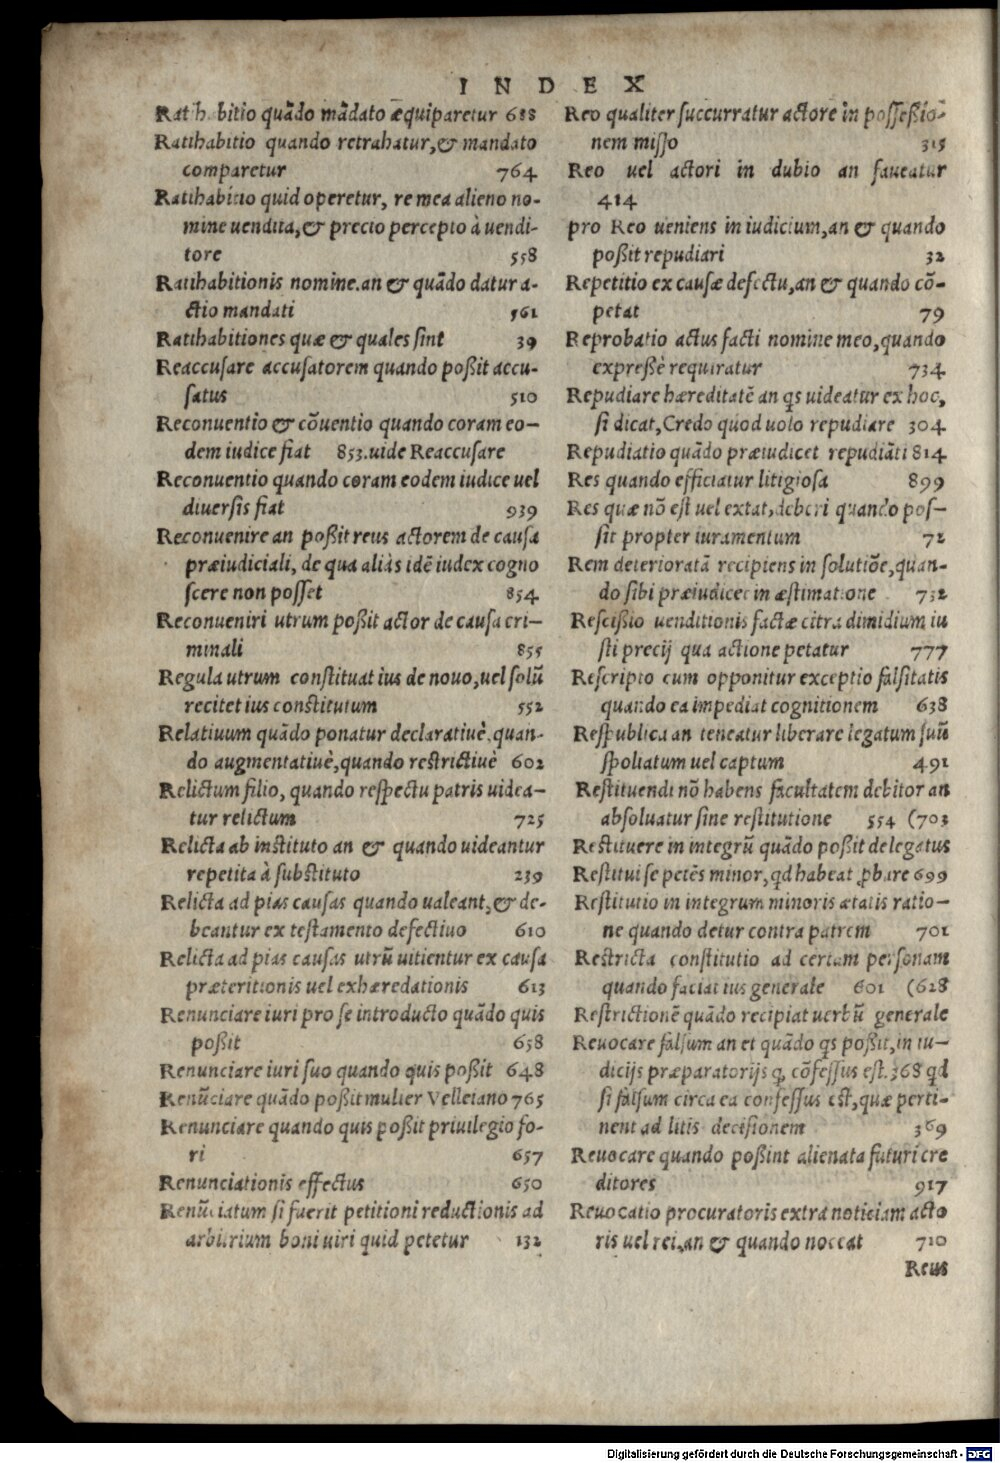 INDEX
Ratihabitio quãdo mãdato æquiparetur 688
Ratihabitio quando retrahatur,& mandato
comparetur 764
Ratihabitio quid operetur, re mea alieno no-
mine uendita,& precio percepto à uendi-
tore 558
Ratihabitionis nomine.an & quãdo datur a-
ctio mandati 561
Ratihabitiones quæ & quales sint 39
Reaccusare accusatorem quando poßit accu-
satus 510
Reconuentio & cõuentio quando coram eo-
dem iudice fiat 853.uide Reaccusare
Reconuentio quando coram eodem iudice uel
diuersis fiat 939
Reconuenire an poßit reus actorem de causa
præiudiciali, de qua aliàs idẽ iudex cogno
scere non posset 854
Reconueniri utrum poßit actor de causa cri-
minali 855
Regula utrum constituat ius de nouo,uel solũ
recitet ius constitutum 552
Relatiuum quãdo ponatur declaratiuè,quan-
do augmentatiuè,quando restrictiuè 602
Relictum filio, quando respectu patris uidea-
tur relictum 725
Relicta ab instituto an & quando uideantur
repetita à substituto 239
Relicta ad pias causas quando ualeant,& de-
beantur ex testamento defectiuo 610
Relicta ad pias causas utrũ uitientur ex causa
præteritionis uel exhæredationis 613
Renunciare iuri pro se introducto quãdo quis
poßit 658
Renunciare iuri suo quando quis poßit 648
Renũciare quãdo poßit mulier Velleiano 765
Renunciare quando quis poßit priuilegio fo-
ri 657
Renunciationis effectus 650
Renũciatum si fuerit petitioni reductionis ad
arbitrium boni uiri quid petetur 132
Reo qualiter succurratur actore in poßeßio-
nem misso 315
Reo uel actori in dubio an faueatur
414
pro Reo ueniens in iudicium,an & quando
poßit repudiari 32
Repetitio ex causæ defectu,an & quando cõ-
petat 79
Reprobatio actus facti nomine meo,quando
expreßè requiratur 734
Repudiare hæreditatẽ an qs uideatur ex hoc,
si dicat,Credo quod uolo repudiare 304
Repudiatio quãdo præiudicet repudiãti 814
Res quando efficiatur litigiosa 899
Res quæ nõ est uel extat,deberi quando pos-
sit propter iuramentum 72
Rem deterioratã recipiens in solutiõe,quan-
do sibi præiudicet in æstimatione 732
Rescißio uenditionis factæ citra dimidium iu
sti precij qua actione petatur 777
Rescripto cum opponitur exceptio falsitatis
quando ea impediat cognitionem 638
Respublica an teneatur liberare legatum suũ
spoliatum uel captum 491
Restituendi nõ habens facultatem debitor an
absoluatur sine restitutione 554 (703
Restituere in integrũ quãdo poßit delegatus
Restitui se petẽs minor,qd habeat ꝓbare 699
Restitutio in integrum minoris ætatis ratio-
ne quando detur contra patrem 701
Restricta constitutio ad certam personam
quando faciat ius generale 601 (628
Restrictionẽ quãdo recipiat uerbũ generale
Reuocare falsum an et quãdo qs poßit,in iu-
dicijs præparatorijs q cõfessus est.368 qd
si falsum circa ea confessus est,quæ perti-
nent ad litis decisionem 369
Reuocare quando poßint alienata futuri cre
ditores 917
Reuocatio procuratoris extra noticiam acto
ris uel rei,an & quando noceat 710
Reus
Digitalisierung gefördert durch die Deutsche Forschungsgemeinschaft - DFG